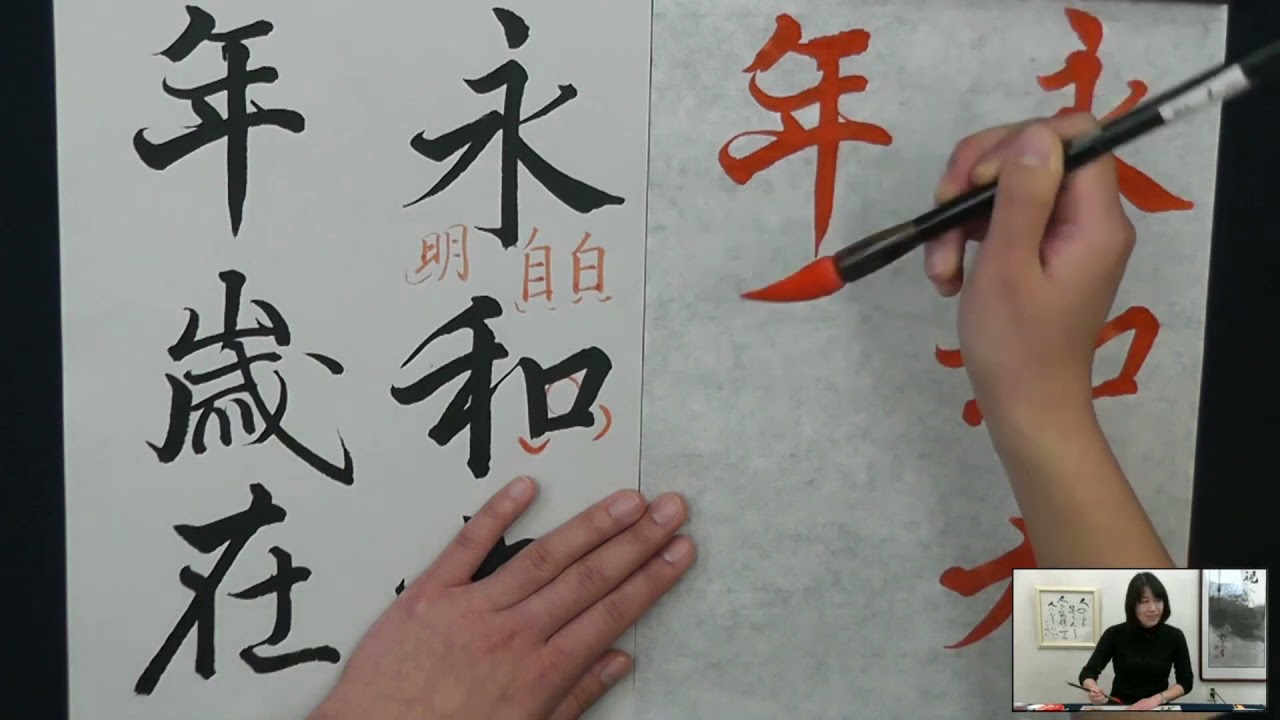 永和
年
永和
白
自
明
年歳在